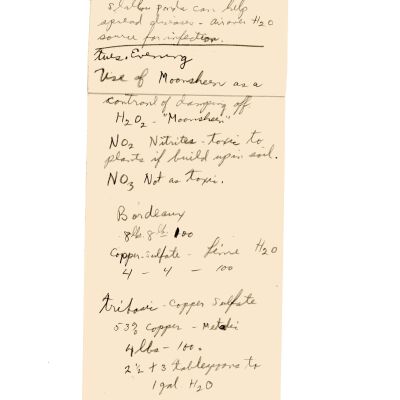 Shallow ponds can help
spread disease - H2O
source for infection.
Tues. Evening
Use of Moonsheen as a
control of damping off
H2O2 - "Moonsheen"
NO2 Nitrites - toxic to
plants if build up in soil.
NO3 Not as toxic.
Bordeaux
8 lb. 8 lb 100
Copper-sulfate - Lime H2O
4 - 4 - 100
tribasic - Copper Sulfate
53% Copper - Metallic
4 lbs - 100.
2 1/2 + 3 tablespoons to
1 gal. H2O